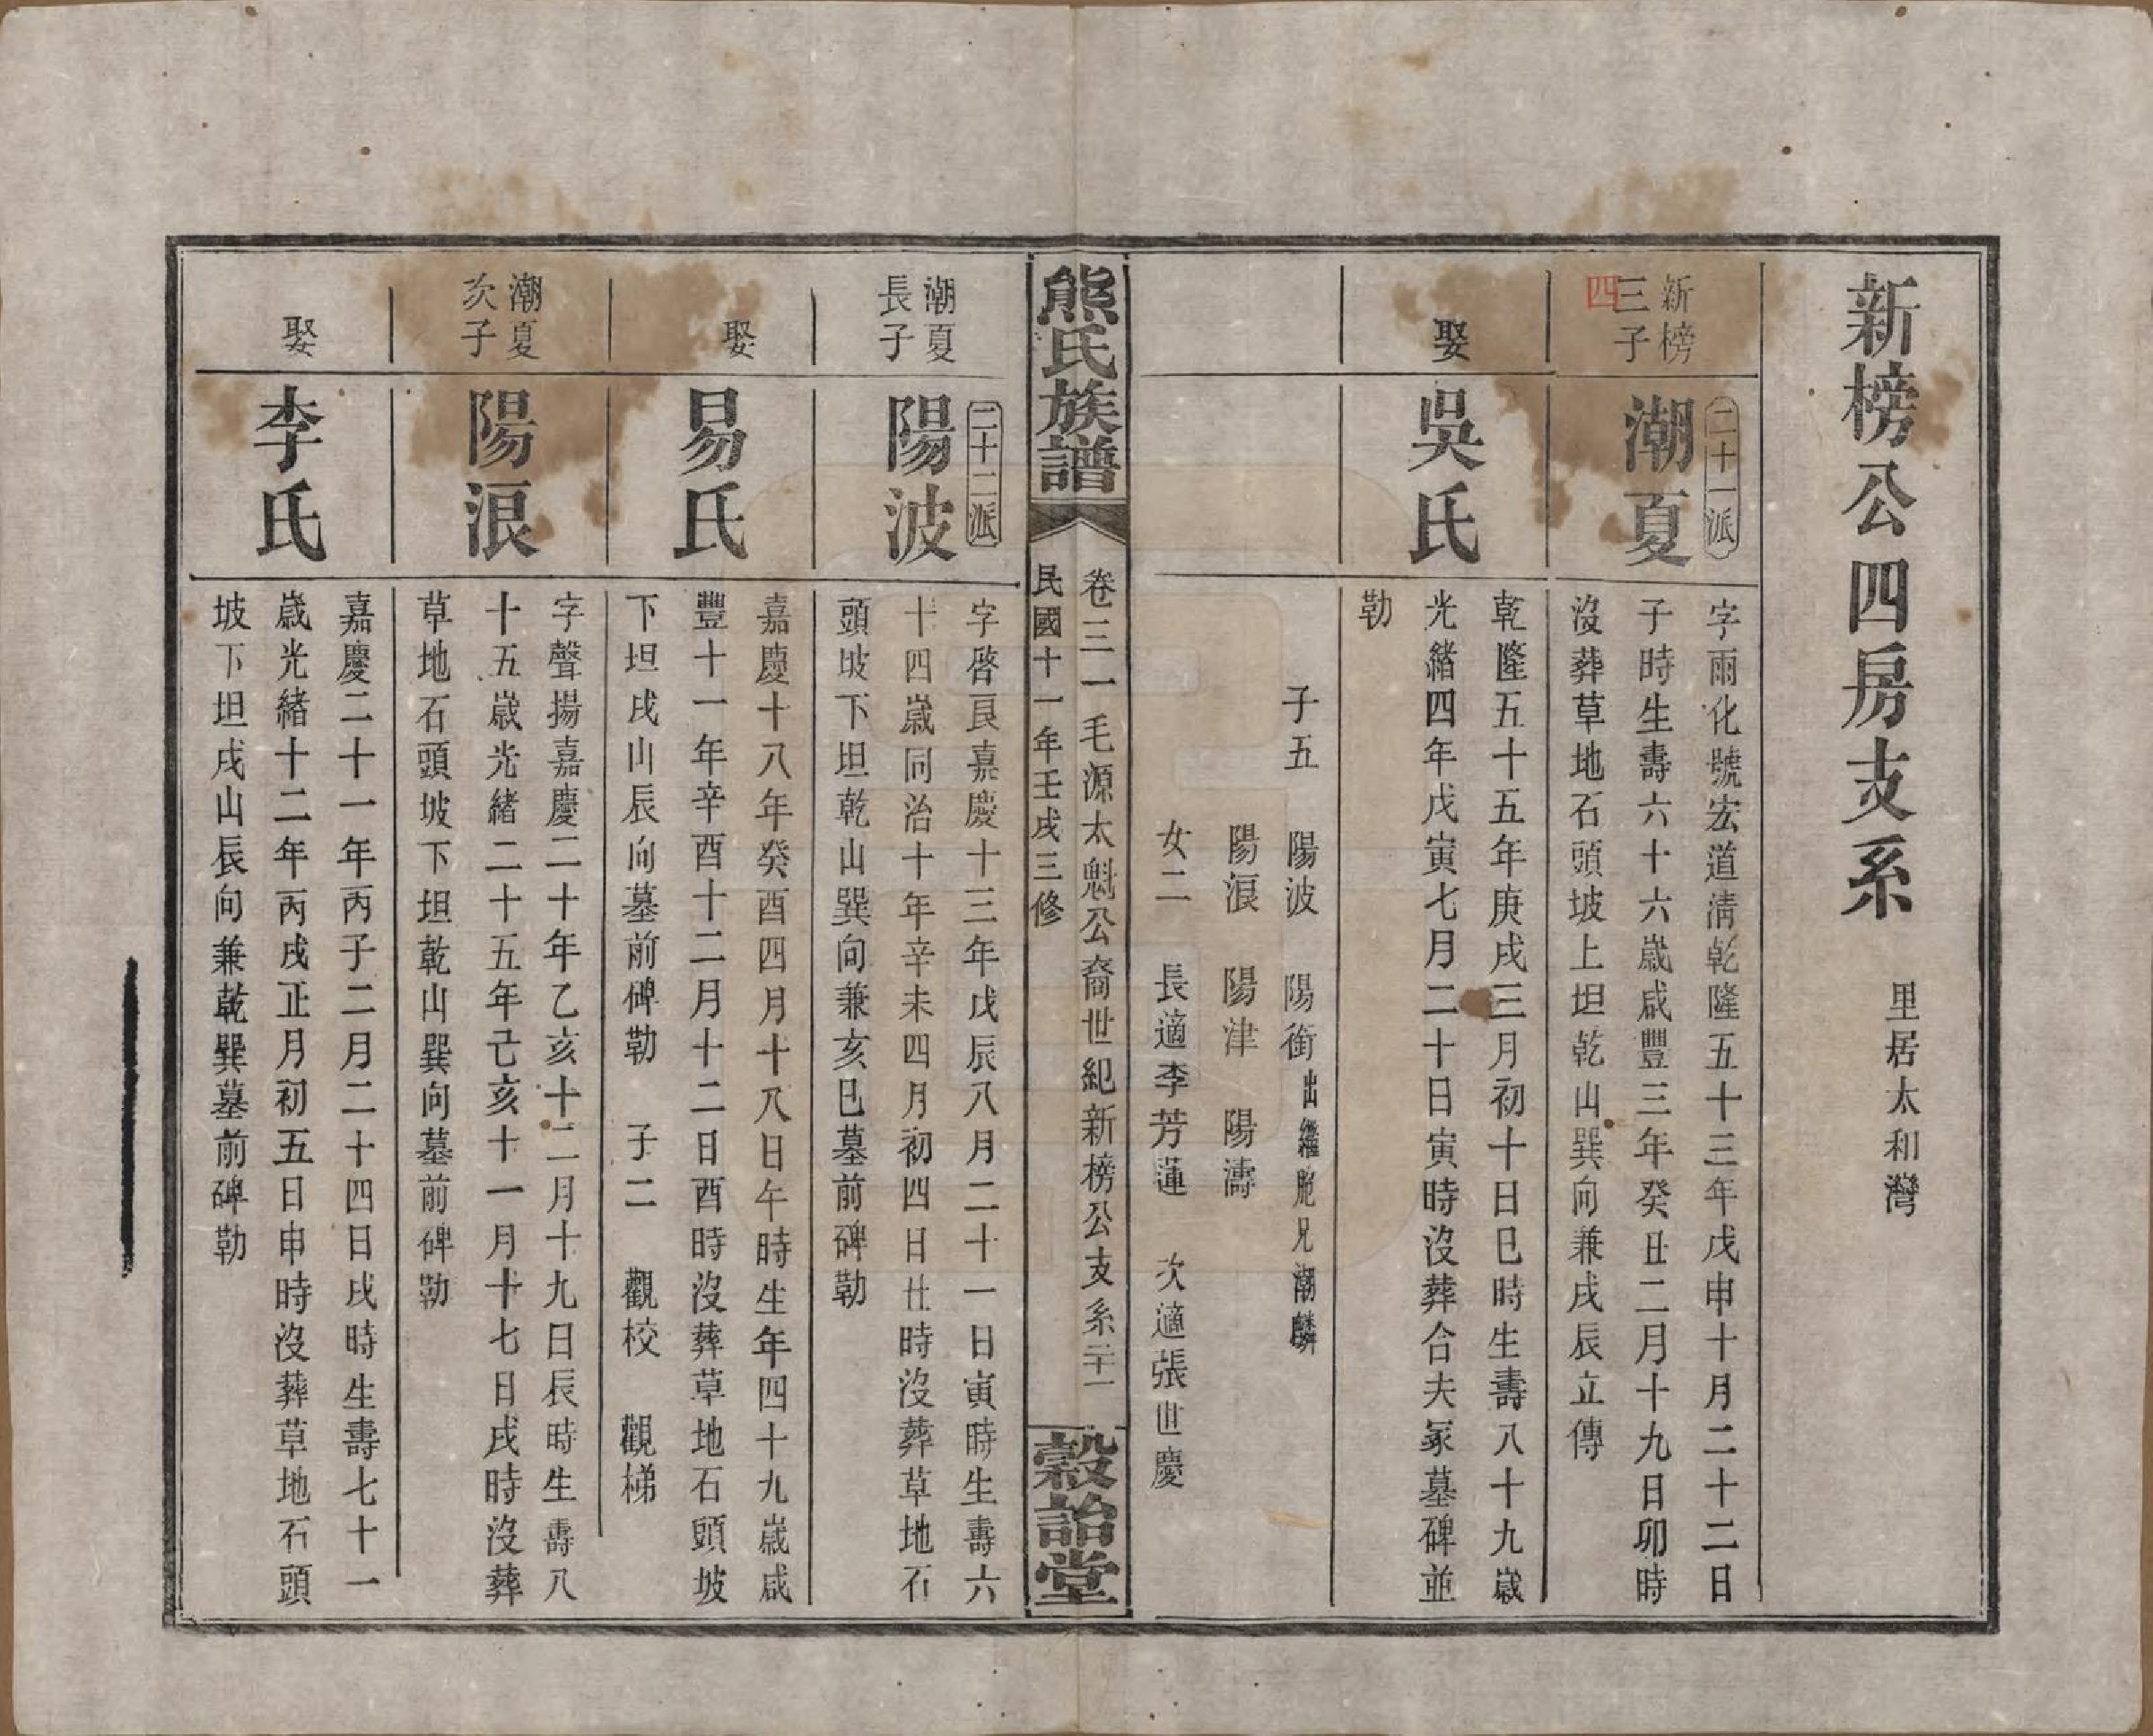 新榜公四房支系
里居太和灣
新榜
三子
四
二十一派
潮夏
字雨化號宏道清乾隆五十三年戊申十月二十二日
子時生壽六十六歲咸豐三年癸丑二月十九日卯時
沒葬草地石頭坡上坦乾山巽向兼戌辰立傳
娶
吳氏
乾隆五十五年庚戌三月初十日巳時生壽八十九歲
光緒四年戊寅七月二十日寅時沒葬合夫冢墓碑並
勒
子五 陽波 陽銜出繼胞兄潮麟
陽浪 陽津 陽濤
女二 長適李芳蓮 次適張世慶
熊氏族譜
卷三一毛源太魁公裔世紀新榜公支系二十一
民國十一年壬戌三修
穀詒堂
潮夏
長子
二十二派
陽波
字啓良嘉慶十三年戊辰八月二十一日寅時生壽六
十四歲同治十年辛未四月初四日丑時沒葬草地石
頭坡下坦乾山巽向兼亥巳墓前碑勒
娶
易氏
嘉慶十八年癸酉四月十八日午時生年四十九歲咸
豐十一年辛酉十二月十二日酉時沒葬草地石頭坡
下坦戌山辰向墓前碑勒 子二 觀校 觀梯
潮夏
次子
陽浪
字聲揚嘉慶二十年乙亥十二月十九日辰時生壽八
十五歲光緒二十五年己亥十一月十七日戌時沒葬
草地石頭坡下坦乾山巽向墓前碑勒
娶
李氏
嘉慶二十一年丙子二月二十四日戌時生壽七十一
歲光緒十二年丙戌正月初五日申時沒葬草地石頭
坡下坦戌山辰向兼乾巽墓前碑勒